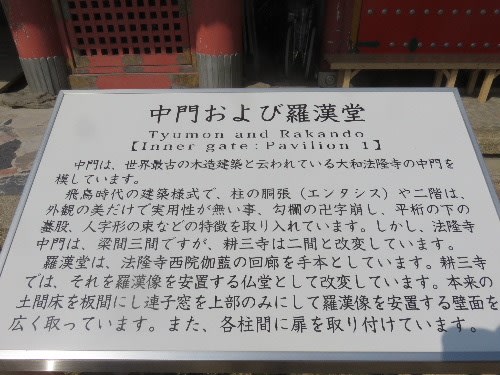 中門および羅漢堂
Tyumon and Rakando
【Inner gate:Pavilion 1】
中門は、世界最古の木造建築と云われている大和法隆寺の中門を
模しています。
飛鳥時代の建築様式で、柱の胴張(エンタシス)や二階は、
外観の美だけで実用性が無い事、勾欄の卍字崩し、平桁の下の
蟇股、人字形の束などの特徴を取り入れています。しかし、法隆寺
中門は、梁間三間ですが、耕三寺は二間と改変しています。
羅漢堂は、法隆寺西院伽藍の回廊を手本としています。耕三寺
では、それを羅漢像を安置する仏堂として改変しています。本来の
土間床を板間にし連子窓を上部のみにして羅漢像を安置する壁面を
広く取っています。また、各柱間に扉を取り付けています。